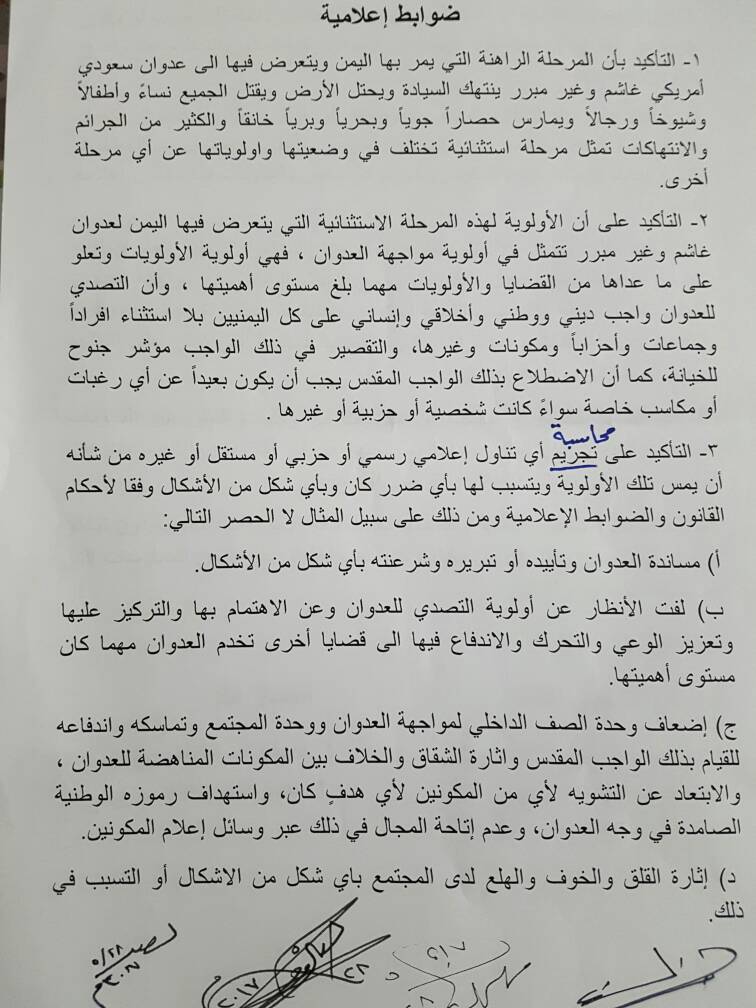 ضوابط إعلامية
١- التأكيد بأن المرحلة الراهنة التي يمر بها اليمن ويتعرض فيها الى عدوان سعودي
أمريكي غاشم وغير مبرر ينتهك السيادة ويحتل الأرض ويقتل الجميع نساءً وأطفالاً
وشيوخاً ورجالاً ويمارس حصاراً جوياً وبحرياً وبرياً خانقاً والكثير من الجرائم
والانتهاكات تمثل مرحلة استثنائية تختلف في وضعيتها واولوياتها عن أي مرحلة
أخرى.
٢- التأكيد على أن الأولوية لهذه المرحلة الاستثنائية التي يتعرض فيها اليمن لعدوان
غاشم وغير مبرر تتمثل في أولوية مواجهة العدوان ، فهي أولوية الأولويات وتعلو
على ما عداها من القضايا والأولويات مهما بلغ مستوى أهميتها ، وأن التصدي
للعدوان واجب ديني ووطني وأخلاقي وإنساني على كل اليمنيين بلا استثناء افراداً
وجماعات وأحزاباً ومكونات وغيرها، والتقصير في ذلك الواجب مؤشر جنوح
للخيانة، كما أن الاضطلاع بذلك الواجب المقدس يجب أن يكون بعيداً عن أي رغبات
أو مكاسب خاصة سواءً كانت شخصية أو حزبية أو غيرها .
محاسبة
٣- التأكيد على تجريم أي تناول إعلامي رسمي أو حزبي أو مستقل أو غيره من شأنه
أن يمس تلك الأولوية ويتسبب لها بأي ضرر كان وبأي شكل من الأشكال وفقا لأحكام
القانون والضوابط الإعلامية ومن ذلك على سبيل المثال لا الحصر التالي:
أ) مساندة العدوان وتأييده أو تبريره وشرعنته بأي شكل من الأشكال.
ب) لفت الأنظار عن أولوية التصدي للعدوان وعن الاهتمام بها والتركيز عليها
وتعزيز الوعي والتحرك والاندفاع فيها الى قضايا أخرى تخدم العدوان مهما كان
مستوى أهميتها.
ج) إضعاف وحدة الصف الداخلي لمواجهة العدوان ووحدة المجتمع وتماسكه واندفاعه
للقيام بذلك الواجب المقدس واثارة الشقاق والخلاف بين المكونات المناهضة للعدوان ،
والابتعاد عن التشويه لأي من المكونين لأي هدفٍ كان، واستهداف رموزه الوطنية
الصامدة في وجه العدوان، وعدم إتاحة المجال في ذلك عبر وسائل إعلام المكونين.
د) إثارة القلق والخوف والهلع لدى المجتمع باي شكل من الاشكال أو التسبب في
ذلك.
٢٨/٥
٢٨
٢٠١٧